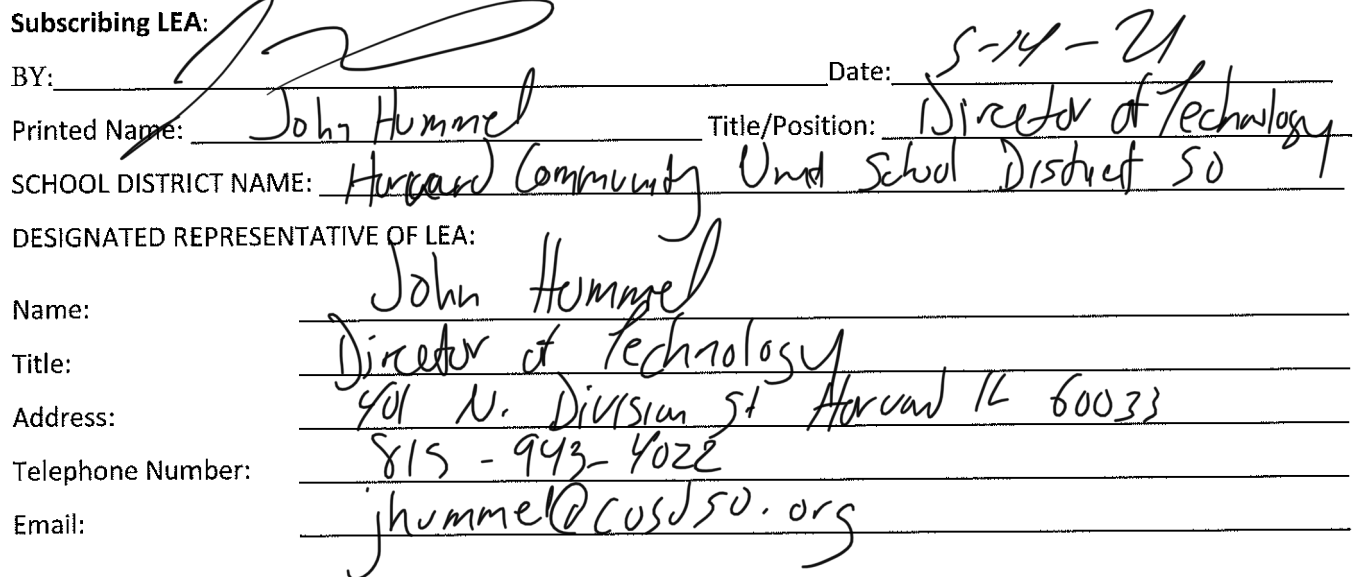 Subscribing LEA:
BY: Date: 5-14-21
Printed Name: John Hummel Title/Position: Director of Technology
SCHOOL DISTRICT NAME: Harvard Community Unit School District 50
DESIGNATED REPRESENTATIVE OF LEA:
Name: John Hummel
Title: Director of Technology
Address: 401 N. Division St Harvard IL 60033
Telephone Number: 815-943-4022
Email: jhummel@cusd50.org